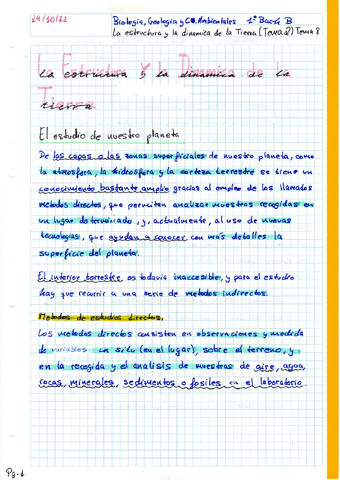 24/10/22
Biología, Geología y CC. Ambientales 1º Bach B
La estructura y la dinamica de la Tierra (Tema 8) Tema 8
La Estructura y la Dinamica de la
Tierra
El estudio de nuestro planeta
De las capas o las zonas superficiales de nuestro planeta, como
la atmosfera, la hidrosfera y la corteza terrestre se tiene un
conocimiento bastante amplio gracias al empleo de los llamados
metodos directos, que permiten analizar muestras recogidas en
un lugar determinado, y, actualmente, al uso de nuevas
tecnologias, que ayudan a conocer con más detalles la
superficie del planeta.
El interior terrestre, es todavia inaccesible, y para el estudio
hay que recurrir a una serie de metodos indirectos.
Metodos de estudios directos.
Los metodos directos consisten en observaciones y medida
de variables un situ (en el lugar), sobre el terreno, y
en la recogida y el analisis de muestras de aire, agua,
rocas, minerales, sedimentos o fosiles en el laboratorio.
Pg. 1